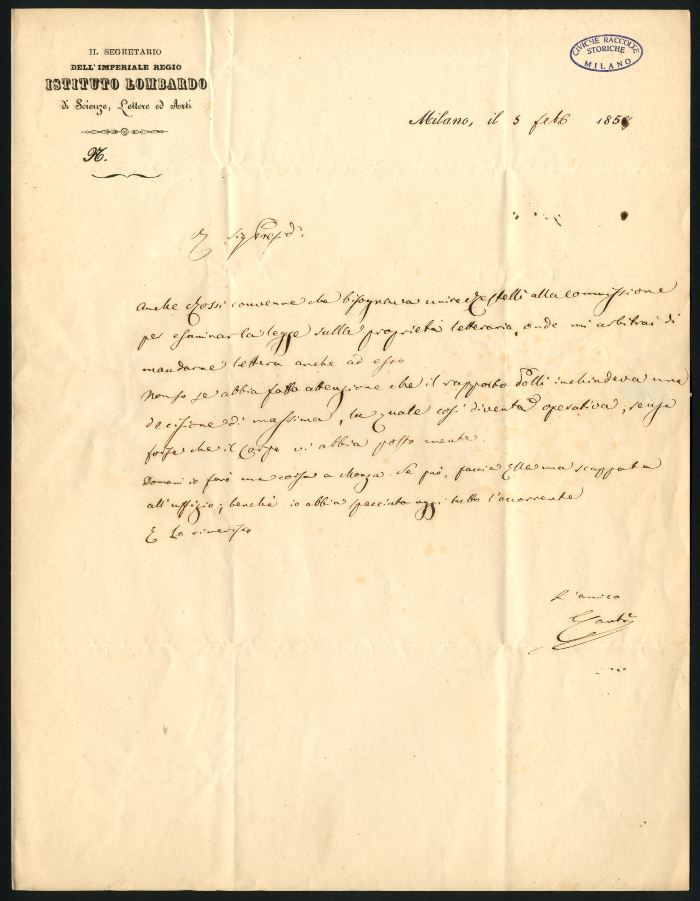 IL SEGRETARIO
DELL'IMPERIALE REGIO
ISTITUTO LOMBARDO
di Scienze, Lettere ed Arti
N.
CIVICHE RACCOLTE
STORICHE
MILANO
Milano, il 5 feb 185
Sig Presid.
Anche Rossi convenne che bisognava unire Restelli alla commissione
per esaminar la legge sulla proprietà letteraria, onde mi arbitrai di
mandarne lettera anche ad esso
Non so se abbia fatto attenzione che il rapporto Polli inchiudeva una
decisione di massima, la quale così diventa operativa; senza
forse che il Corpo vi abbia posto mente.
Domani io farò una corsa a Monza. Se può, faccia Ella una scappata
all'uffizio; benchè io abbia spacciato oggi tutto l'occorrente
E La riverisco
L'amico
Cantù